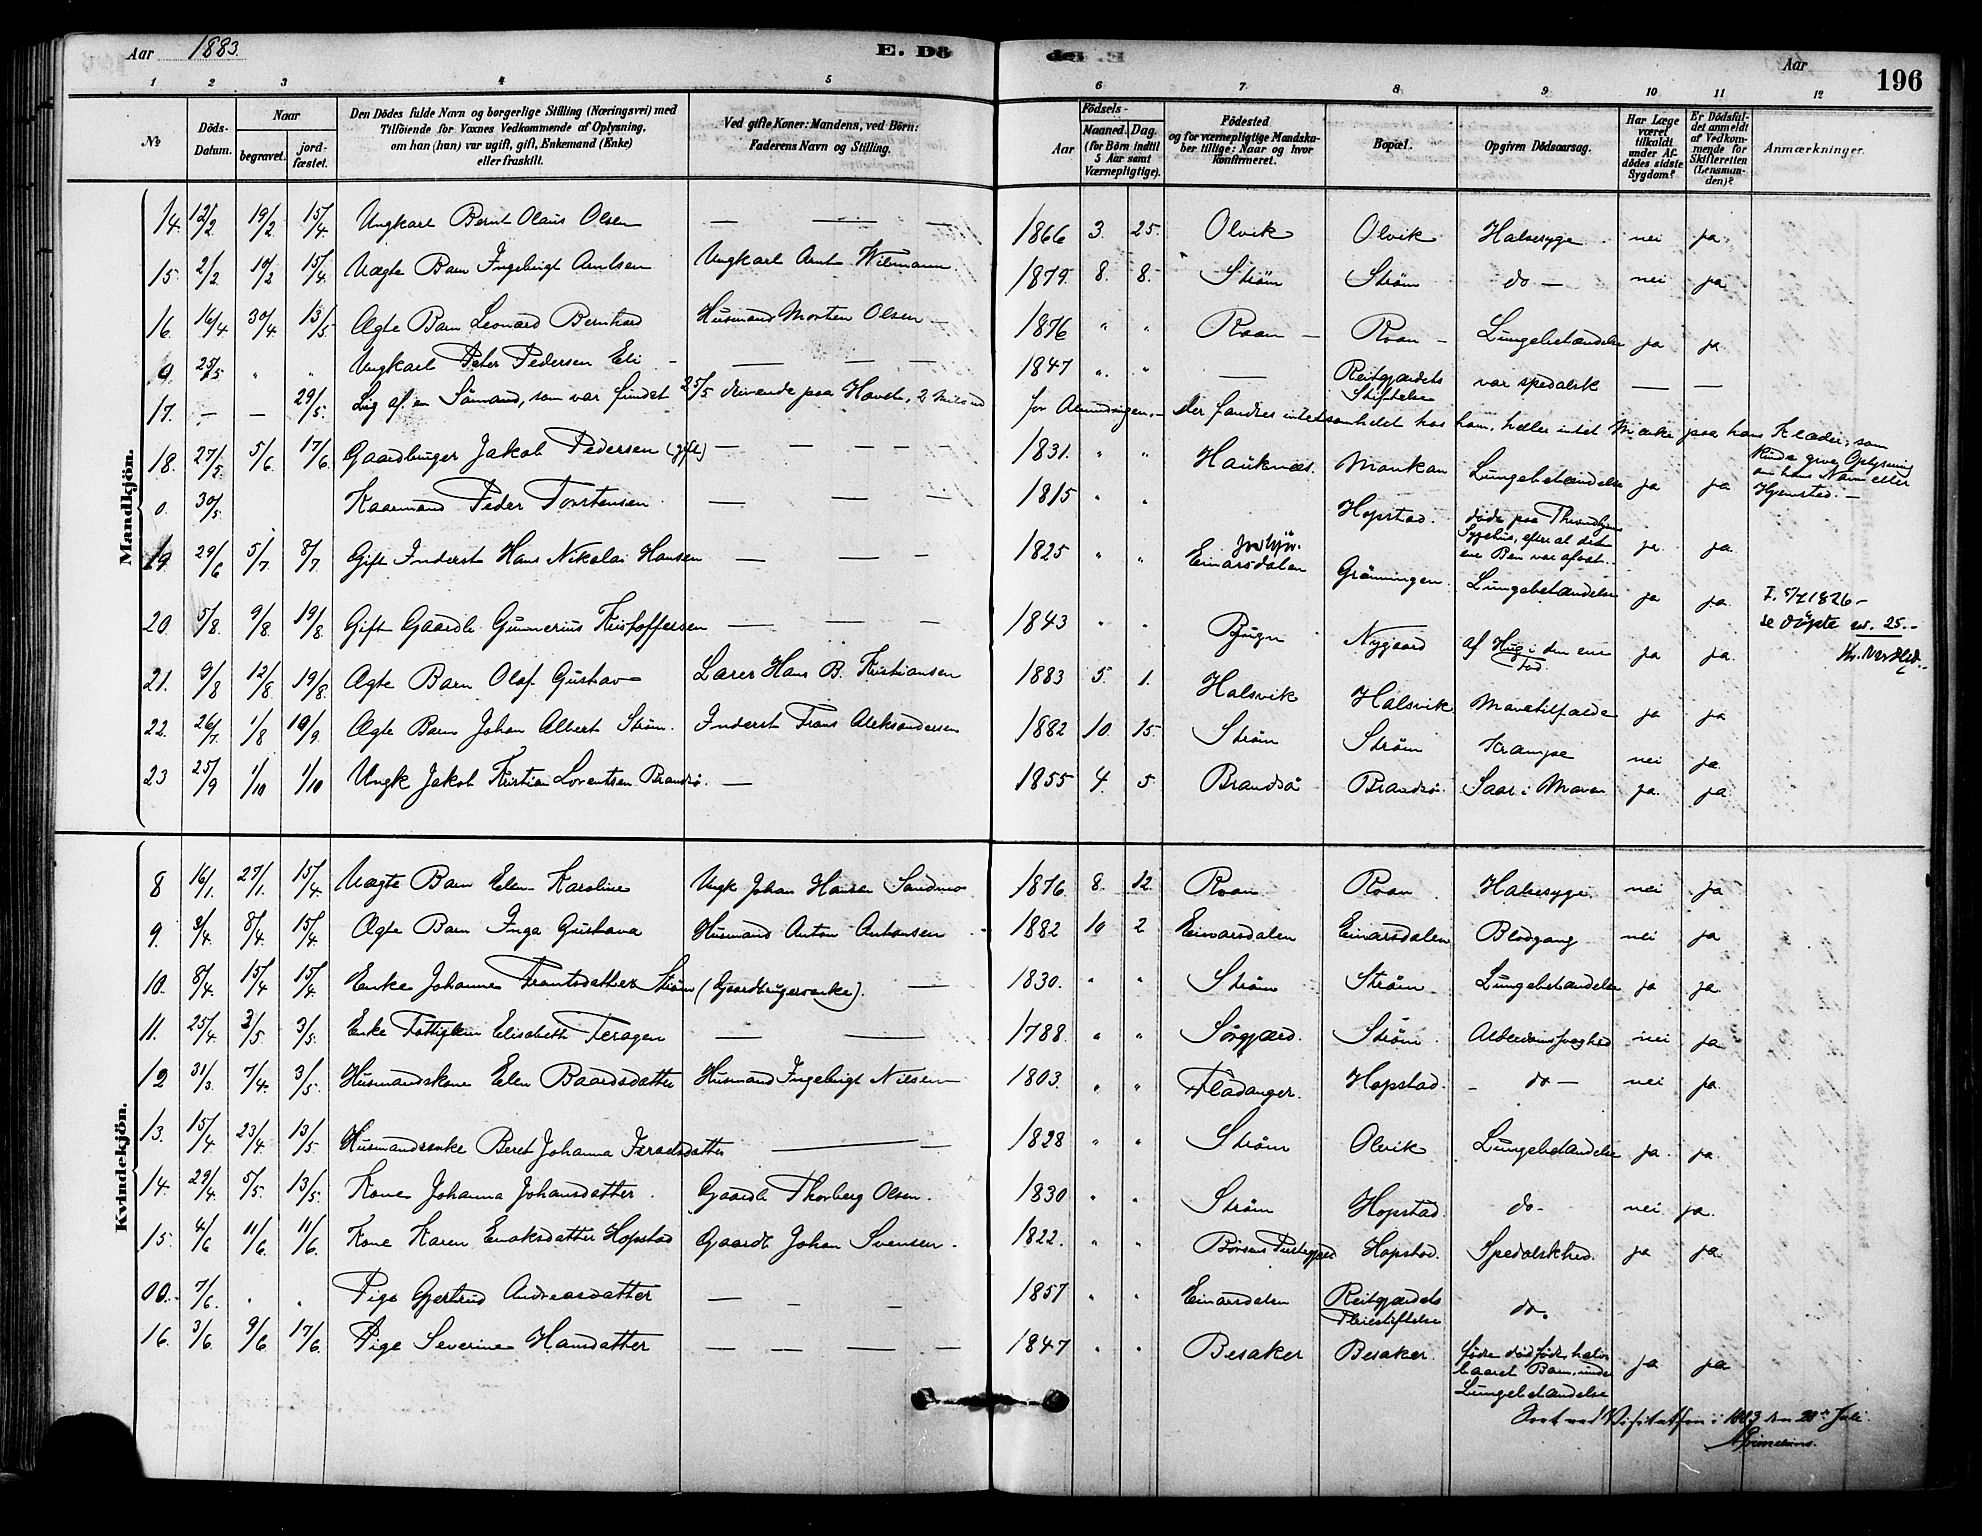 Aar 1883. E. Dö
1 2 3 4 5
№ Döds-Datum. Naar begravet. jord-fæstet. Den Dödes fulde Navn og borgerlige Stilling (Næringsvei) med Tilföiende for Voxnes Vedkommende af Oplysning, om han (hun) var ugift, gift, Enkemand (Enke) eller fraskilt. Ved gifte Koner: Mandens, ved Börn: Faderens Navn og Stilling.
de. E. Aar 196
6 7 8 9 10 11 12
Aar Födsels- Maaned. Dag. (for Börn indtil 5 Aar samt Værnepligtige). Födested og for værnepligtige Mandskaber tillige: Naar og hvor Konfirmeret. Bopæl. Opgiven Dödsaarsag. Har Læge været tilkaldt under Afdödes sidste Sygdom? Er Dödsfaldet anmeldt af Vedkommende for Skifteretten (Lensmanden)? Anmærkninger.
Mandkjön.
14. 12/2 19/2 15/4 Ungkarl Bernt Olaus Olsen — — — 1866 3. 25. Olvik Olvik Halsesyge nei ja
15. 2/2 10/2 15/4 Uægte Barn Ingebrigt Arntsen Ungkarl Arnt Wilmann 1879. 8. 8. Ström Ström do — nei ja
16. 16/4 30/4 13/5 Ægte Barn Leonard Bernhard Husmand Morten Olsen — 1876 " " Roan — Roan — Lungebetændelse ja ja
0. 23/5 " " Ungkarl Peter Pedersen Eli — — — 1847 " " — Reitgjærdets Stiftelse var spedalsk — —
17. — — 29/5. Lig af en Sömand, som var fundet 25/5 drivende paa Havet, 2 Mil ud for Almindingen. — Der fandtes intet somhelst hos ham, heller intet Mærke paa hans Klæder, som kunde give Oplysning om hans Navn eller Hjemsted. —
18. 27/5 5/6 17/6 Gaardbruger Jakob Pedersen (gift) — — — — 1831. " " Hauknæs. Monkan Lungebetændelse ja ja
0. 30/5 Kaarmand Peder Torstensen — — — 1815 " " Hopstad. döde paa Throndhjems Sygehus, efter at det ene Ben var afsat. ja ja
19. 29/6 5/7 8/7 Gift Inderst Hans Nikolai Hansen — — — 1825 " " Einarsdalen Grönningen. Lungebetændelse ja ja. F. 5/7 1826 — se döpte nr. 25. —
20. 5/8. 9/8. 19/8. Gift Gaardb. Gunnerius Kristoffersen — — — 1843 " " Bjugn Nygaard af Hug i den ene Fod. ja ja.
21. 9/8 12/8 19/8. Ægte Barn Olaf Gustav Lærer Hans B. Kristiansen 1883 5. 1. Halsvik Halsvik Mavetilfælde ja ja
22. 26/7. 1/8 10/9. Ægte Barn Johan Albert Ström. Inderst Frans Aleksandersen 1882 10. 15. Ström Ström Krampe nei ja.
23 25/9 1/10 1/10 Ungk Jakob Kristian Lorentsen Brandsö. — 1855 4. 5. Brandsö Brandsö. Saar i Maven ja. ja.
Kvindekjön.
8 16/1. 27/1. 15/4 Uægte Barn Elen Karoline Ungk Johan Hansen Sandmo 1876 8. 12. Roan. Roan. Halsesyge nei ja
9. 3/4. 8/4. 15/4 Ægte Barn Inga Gustava Husmand Anton Antonsen 1882 10 2 Einarsdalen Einarsdalen Blodgang nei ja
10. 8/4. 15/4 15/4. Enke Johanne Frantsdatter Ström (Gaardbrugerenke). — 1830. " " Ström Ström Lungebetændelse ja ja.
11. 25/4 3/5 3/5. Enke Fattiglem Elisabeth Teragen — — 1788. " " Sörgjærd. Ström. Alderdomssvaghed nei ja
12 31/3 7/4. 3/5. Husmandskone Elen Baardsdatter Husmand Ingebrigt Nilsen 1803. " " Fladanger. Hopstad. — do — nei ja.
13. 15/4 23/4. 13/5. Husmandsenke Beret Johanna Israelsdatter — — 1828 " " Ström Olvik Lungebetændelse ja. ja.
14. 29/4. 5/5. 13/5. Kone Johanna Johansdatter. Gaardb Thorberg Olsen. 1830 " " Ström Hopstad. do — nei ja.
15. 4/6 11/6. 11/6. Kone Karen Enoksdatter Hopstad Gaardb Johan Svensen. 1822. " " Börsens Hopstad. Spedalskhed. ja ja.
00. 7/6. " " Pige Gjertrud Andreasdatter — — — 1857 " " Einarsdalen Reitgjærdets Pleiestiftelse do.
16. 3/6. 9/6. 17/6. Pige Severine Hansdatter — — — — 1847 " " Besaker Besaker. födte dödfödt, halv baaret Barn, under Lungebetændelse ja ja
ved Visitatsen i 1883 den 28de Juli.